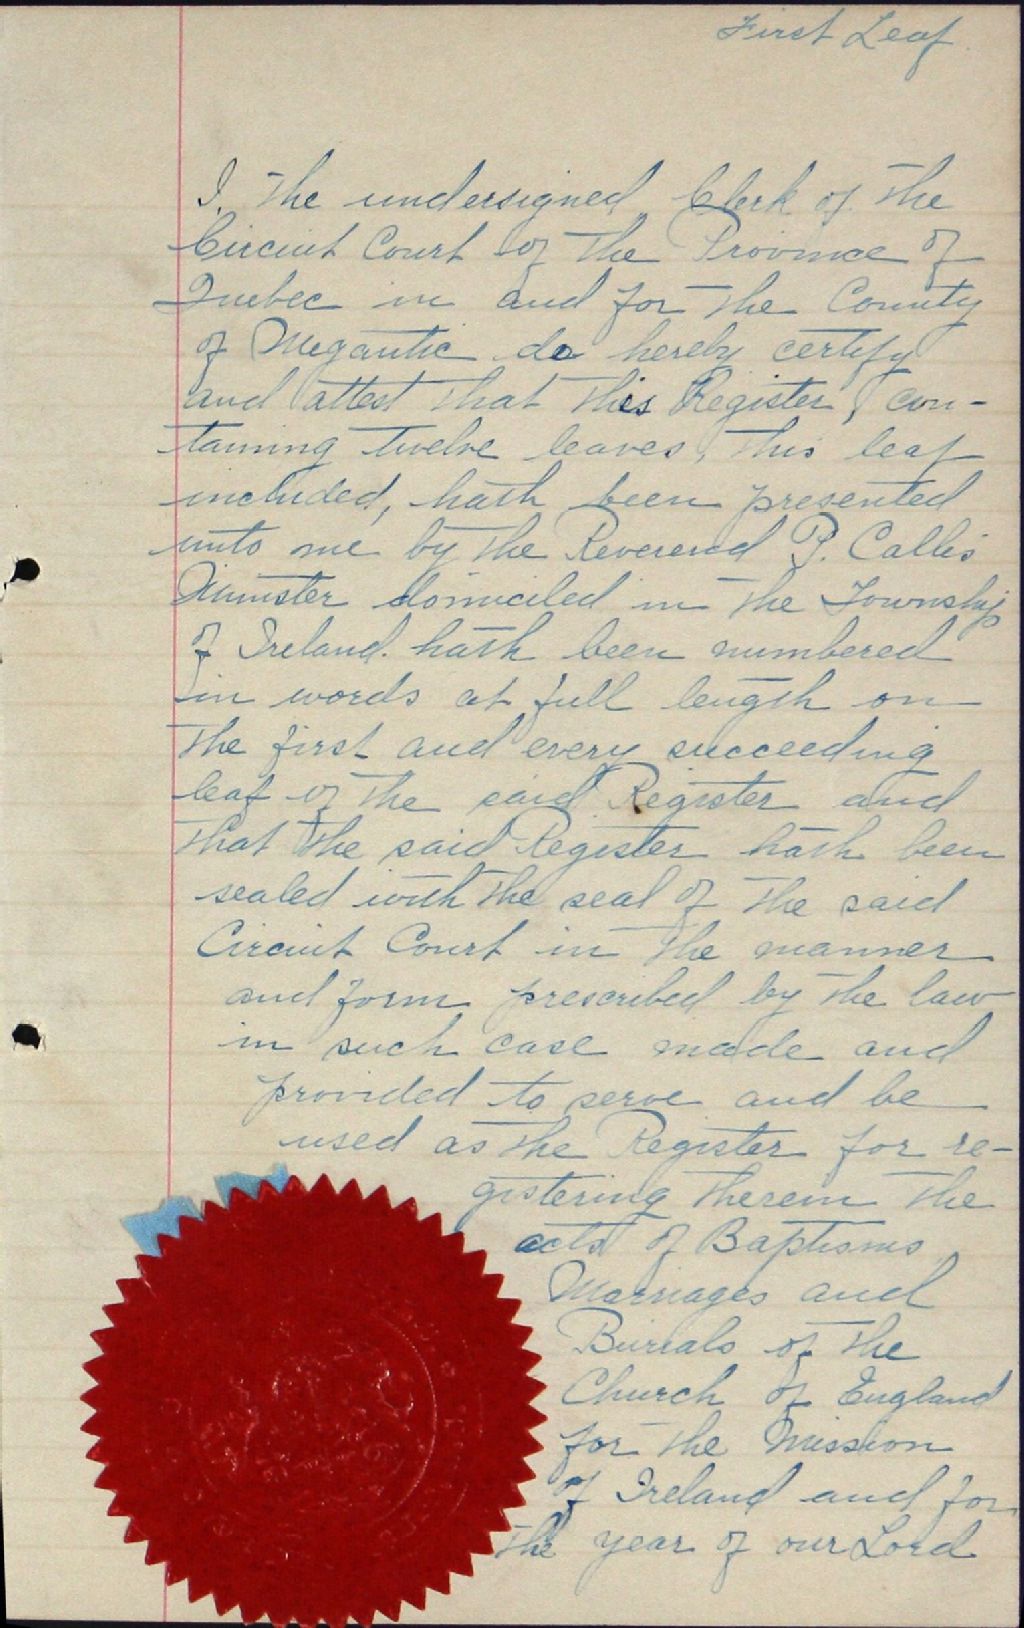 First Leaf
I, the undersigned, Clerk of the
Circuit Court of the Province of
Quebec in and for the County
of Megantic do hereby certify
and attest that this Register, con-
taining twelve leaves, this leaf
included, hath been presented
unto me by the Reverend P. Callis
Minister domiciled in the Township
of Ireland. hath been numbered
in words at full length on
the first and every succeeding
leaf of the said Register and
that the said Register hath been
sealed with the seal of the said
Circuit Court in the manner
and form prescribed by the law
in such case made and
provided to serve and be
used as the Register for re-
gistering therein the
acts of Baptisms
Marriages and
Burials of the
Church of England
for the Mission
of Ireland and for
the year of our Lord